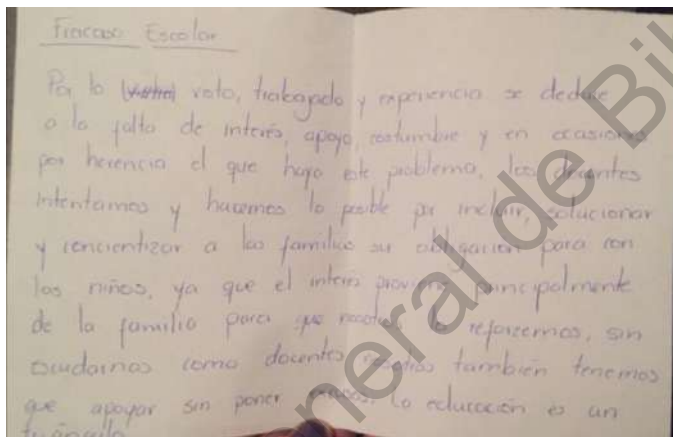 Fracaso Escolar
Por lo visto, trabajado y experiencia se deduce
a la falta de interés, apoyo, costumbre y en ocasiones
por herencia el que haya este problema, los docentes
intentamos y hacemos lo posible por incluir, solucionar
y concientizar a las familias su obligación para con
los niños, ya que el interés proviene principalmente
de la familia para que nosotros lo reforcemos, sin
como docentes nosotros también tenemos
que apoyar sin poner la educación es un
triángulo
neral de Bil